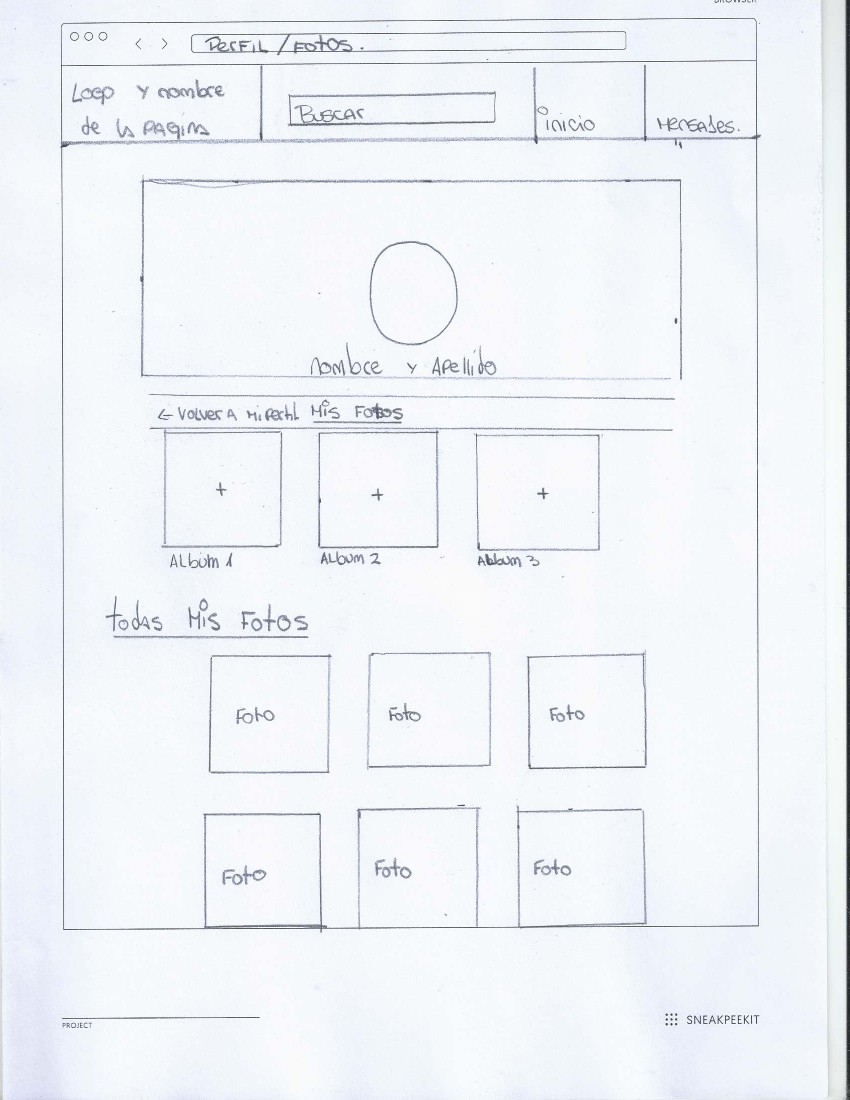 BROWSER
PERFIL / FOTOS.
LOGO Y nombre
de la PAGINA
BUSCAR
inicio
MENSAJES.
nombre y Apellido
← VOLVER A Mi Perfil Mis FOTOS
ALbum 1
ALbum 2
ALbum 3
todas Mis Fotos
Foto
Foto
Foto
Foto
Foto
Foto
PROJECT
SNEAKPEEKIT